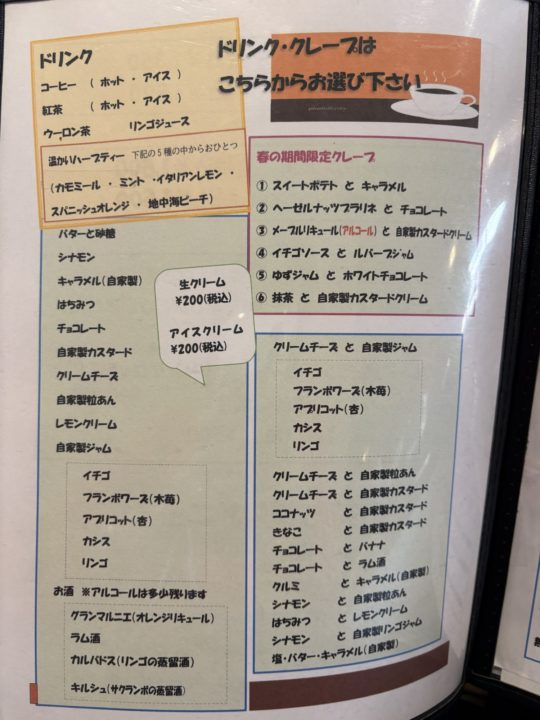 ドリンク・クレープは
こちらからお選び下さい
ドリンク
コーヒー （ ホット ・ アイス ）
紅茶 （ ホット ・ アイス ）
ウーロン茶 リンゴジュース
温かいハーブティー 下記の5種の中からおひとつ
（カモミール ・ ミント ・イタリアンレモン ・
スパニッシュオレンジ ・ 地中海ピーチ）
バターと砂糖
シナモン
キャラメル（自家製）
はちみつ
チョコレート
自家製カスタード
クリームチーズ
自家製粒あん
レモンクリーム
自家製ジャム
イチゴ
フランボワーズ（木苺）
アプリコット（杏）
カシス
リンゴ
お酒 ※アルコールは多少残ります
グランマルニエ（オレンジリキュール）
ラム酒
カルバドス（リンゴの蒸留酒）
キルシュ（サクランボの蒸留酒）
生クリーム
¥200（税込）
アイスクリーム
¥200（税込）
春の期間限定クレープ
① スイートポテト と キャラメル
② ヘーゼルナッツプラリネ と チョコレート
③ メープルリキュール（アルコール） と 自家製カスタードクリーム
④ イチゴソース と ルバーブジャム
⑤ ゆずジャム と ホワイトチョコレート
⑥ 抹茶 と 自家製カスタードクリーム
クリームチーズ と 自家製ジャム
イチゴ
フランボワーズ（木苺）
アプリコット（杏）
カシス
リンゴ
クリームチーズ と 自家製粒あん
クリームチーズ と 自家製カスタード
ココナッツ と 自家製カスタード
きなこ と 自家製カスタード
チョコレート と バナナ
チョコレート と ラム酒
クルミ と キャラメル（自家製）
シナモン と 自家製粒あん
はちみつ と レモンクリーム
シナモン と 自家製リンゴジャム
塩・バター・キャラメル（自家製）